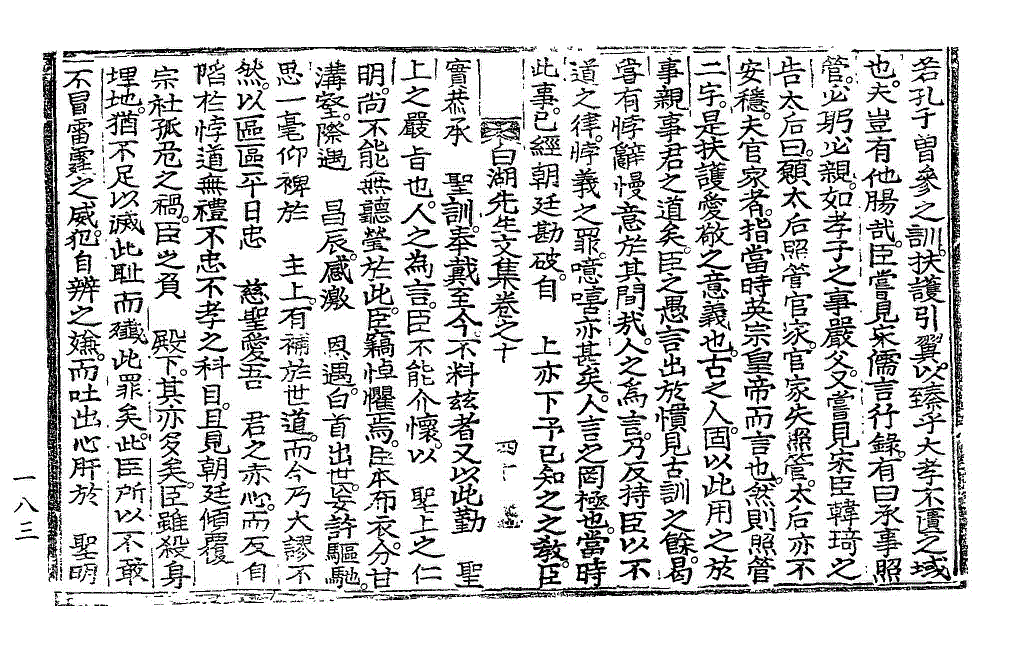 若孔子曾參之訓。扶護引翼。以臻乎大孝不匱之域
也。夫豈有他腸哉。臣嘗見宋儒言行錄。有曰承事照
管。必躬必親。如孝子之事嚴父。又嘗見宋臣韓琦之
告太后曰。願太后照管官家。官家失照管。太后亦不
安穩。夫官家者。指當時英宗皇帝而言也。然則照管
二字。是扶護愛敬之意義也。古之人固以此用之於
事親事君之道矣。臣之愚言出於慣見古訓之餘。曷
嘗有悖辭慢意於其間哉。人之爲言。乃反持臣以不
道之律。悖義之罪。噫嘻亦甚矣。人言之罔極也。當時
此事。已經朝廷勘破。自 上亦下予已知之之敎。臣
白湖先生文集卷之十 四十
實恭承 聖訓。奉戴至今。不料玆者又以此勤 聖
上之嚴旨也。人之為言。臣不能介懷。以 聖上之仁
明。尚不能無聽瑩於此。臣竊悼懼焉。臣本布衣。分甘
溝壑。際遇 昌辰。感激 恩遇。白首出世。妄許驅馳。
思一毫仰裨於 主上。有補於世道。而今乃大謬不
然。以區區平日忠 慈聖愛吾 君之赤心。而反自
陷於悖道無禮不忠不孝之科目。且見朝廷傾覆
宗社孤危之禍。臣之負 殿下。其亦多矣。臣雖殺身
埋地。猶不足以滅此耻而殱此罪矣。此臣所以不敢
不冒雷霆之威。犯自辨之嫌。而吐出心肝於 聖明
一八三